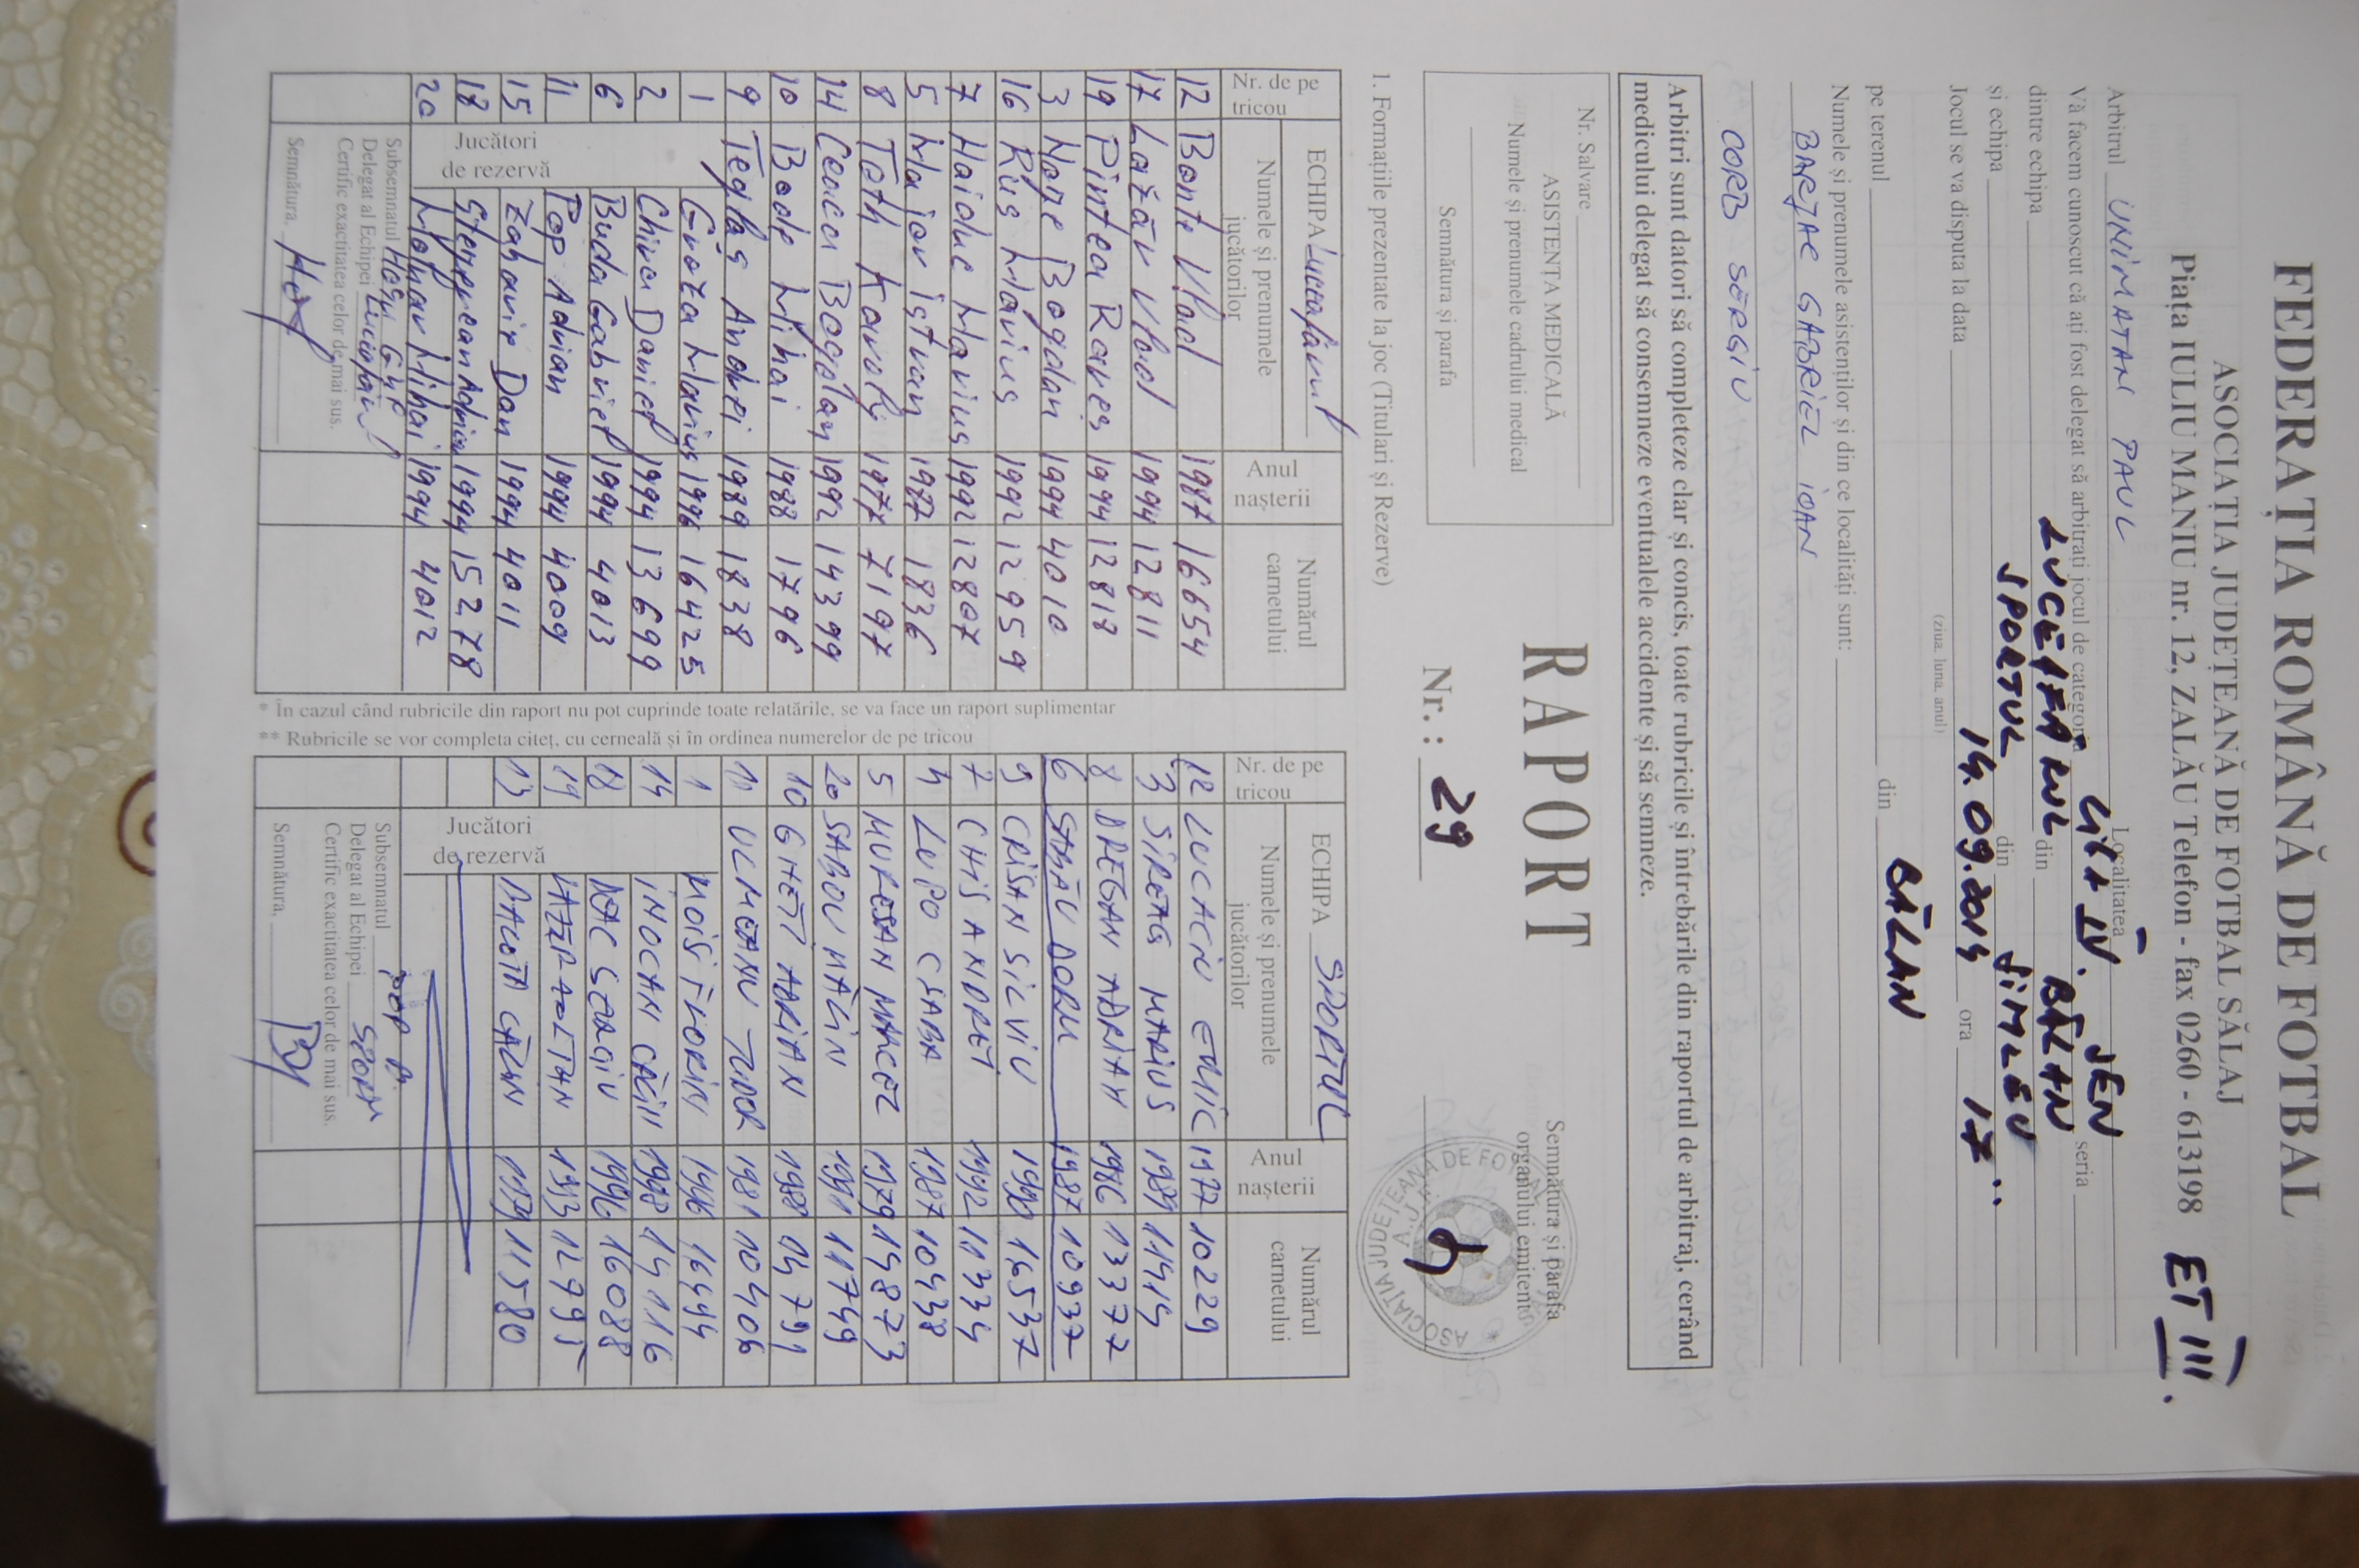 FEDERAȚIA ROMÂNĂ DE FOTBAL
ASOCIAȚIA JUDEȚEANĂ DE FOTBAL SĂLAJ
Piața IULIU MANIU nr. 12, ZALĂU Telefon - fax 0260 - 613198 ET III.
Arbitrul UNIMATAN PAUL Localitatea
Vă facem cunoscut că ați fost delegat să arbitrați jocul de categoria LIGA IV. SEN seria
dintre echipa LUCEAFĂRUL din BĂLAN
și echipa SPORTUL din ȘIMLEU
Jocul se va disputa la data 14.09.2014 ora 17
(ziua. luna. anul)
pe terenul din BĂLAN
Numele și prenumele asistenților și din ce localități sunt:
GABRIEL IOAN
CORB SERGIU
Arbitri sunt datori să completeze clar și concis, toate rubricile și întrebările din raportul de arbitraj, cerând
medicului delegat să consemneze eventualele accidente și să semneze.
Nr. Salvare
ASISTENȚA MEDICALĂ
Numele și prenumele cadrului medical
Semnătura și parafa
RAPORT
Nr.: 29
Semnătura și parafa
organului emitent
ASOCIAȚIA JUDEȚEANĂ DE FOTBAL
A.J.F.
1. Formațiile prezentate la joc (Titulari și Rezerve)
Nr. de pe tricou
ECHIPA Luceafărul
Numele și prenumele jucătorilor
Anul nașterii
Numărul carnetului
12 Bonte Vlad 1987 16654
17 Lazăr Vlad 1994 12811
19 Pintea Rareș 1994 12818
3 Bogdan 1994 4010
16 Rus Marius 1992 12959
7 Haiduc Marius 1992 12807
5 Maior Istvan 1987 1836
8 Toth Karoly 1977 7197
14 Cracu Bogdan 1992 14399
10 Bode Mihai 1988 1796
9 Teglas Andrei 1989 1838
1 Groza Marius 1996 16425
2 Chira Daniel 1994 13699
6 Buda Gabriel 1994 4013
11 Pop Adrian 1994 4009
15 Zaharir Dan 1994 4011
18 Stepprean Adrian 1994 15278
20 Mihai 1994 4012
Jucători
de rezervă
Subsemnatul
Delegat al Echipei Luceafărul
Certific exactitatea celor de mai sus.
Semnătura,
* În cazul când rubricile din raport nu pot cuprinde toate relatările, se va face un raport suplimentar
** Rubricile se vor completa citeț, cu cerneală și în ordinea numerelor de pe tricou
Nr. de pe tricou
ECHIPA SPORTUL
Numele și prenumele jucătorilor
Anul nașterii
Numărul carnetului
12 LUCACIU EMIC 1977 10229
3 SIREAG MARIUS 1989 11414
8 DREGAN ADRIAN 1986 13377
6 SABĂU DORU 1987 10937
9 CRISAN SILVIU 1990 16537
7 CHIS ANDREI 1992 11334
4 LUPO CSABA 1987 10438
5 MURESAN MARCEL 1979 14873
20 SABOU MĂLIN 1990 11749
10 GHETI ADRIAN 1988 04791
11 ULMEANU TUDOR 1981 10406
1 MOIS FLORIN 1996 16444
14 INOCAN CĂLIN 1998 14116
18 SERGIU 1996 16088
19 1993 12795
13 CĂLIN 1989 11580
Jucători
de rezervă
Subsemnatul POP
Delegat al Echipei SPORTUL
Certific exactitatea celor de mai sus.
Semnătura,